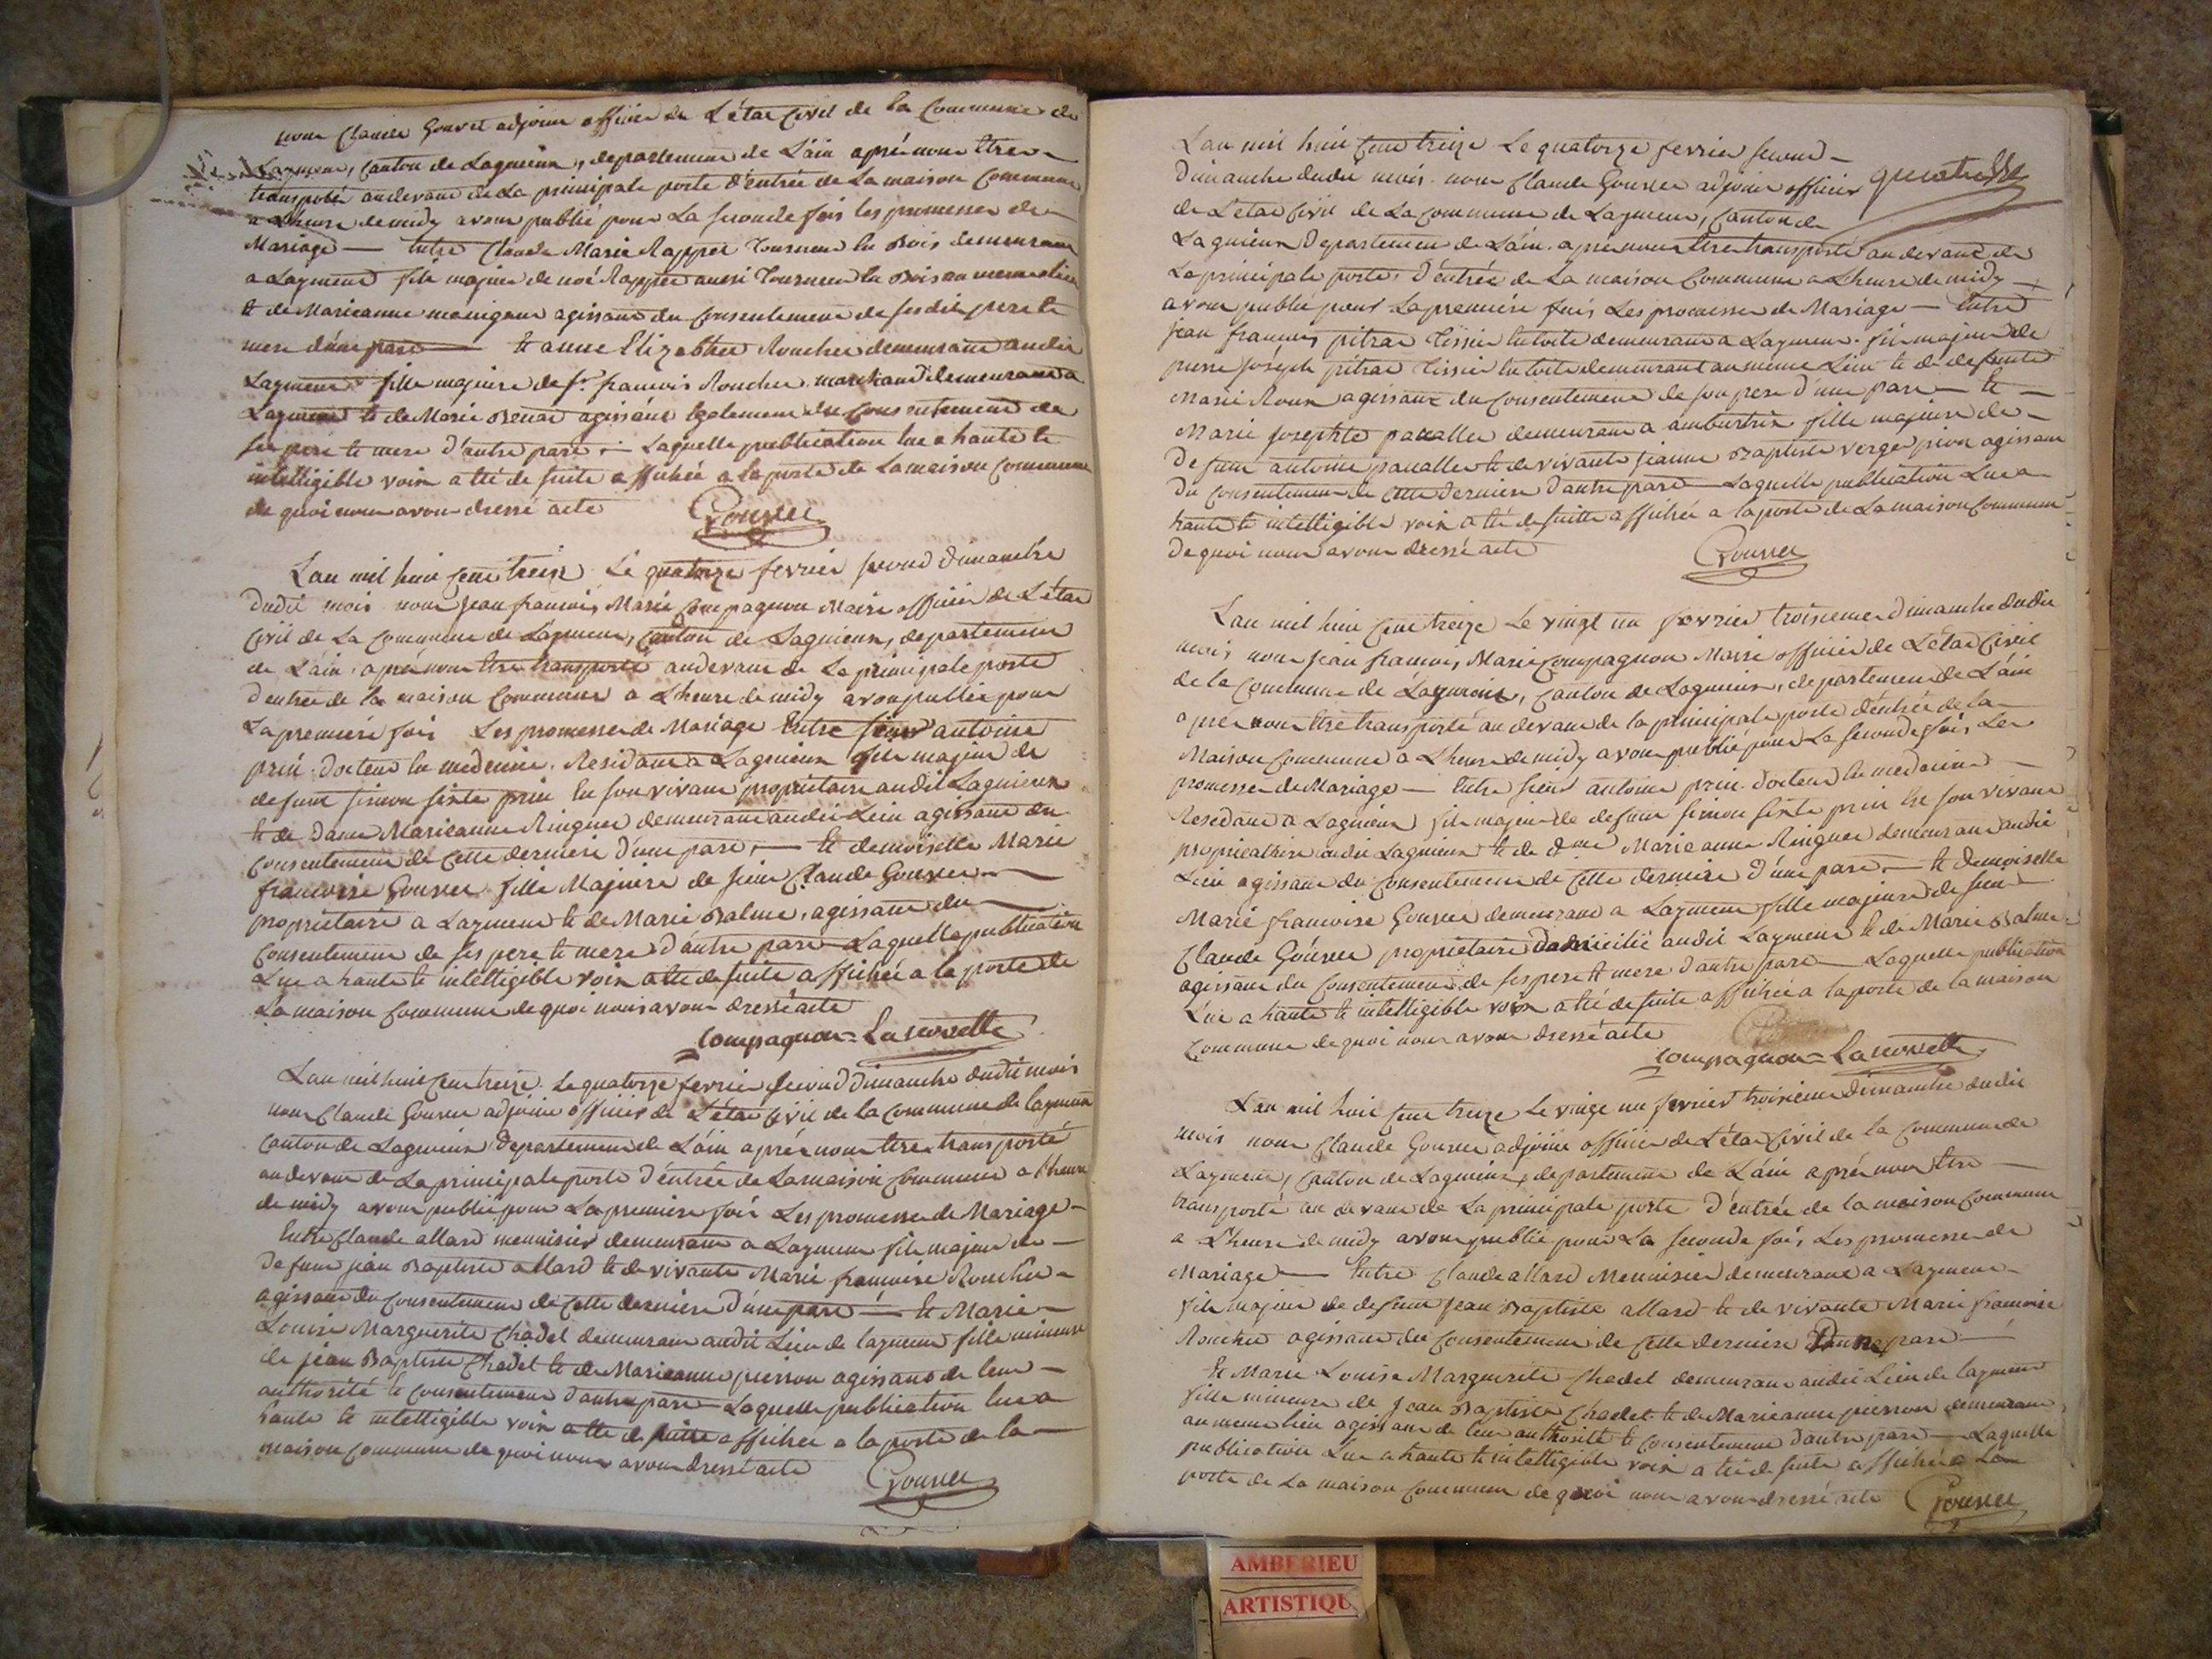 nous Claude Gouvet adjoint officier de L'état Civil de la Commune de
Lagnieu, canton de Lagnieux, departement de L'ain aprè nous être
transporté audevant de La principale porte d'entrée de La maison Commune
a L'heure de midy avons publié pour La seconde fois les promesses de
Mariage — Entre Claude Marie Rappet Tourneur En Bois demeurant
a Laymend fils majeur de noé Rappet aussi Tourneur En Bois au meme lieu
Et de Marieanne agissant du Consentement de ses dits pere Et
mere d'une part — Et anne Elizabthee Roucher demeurant audit
Laymend fille majeure de sr. francois Roucher marchand demeurant a
Laymend Et de Marie Benat agissant Egalement du Consentement de
ses pere Et mere d'autre part — Laquelle publication lue a haute Et
intelligible voix a été de suite affichée a la porte de La maison Commune
de quoi nous avons dressé acte Gouvet
L'an mil huit Cent treize Le quatorze fevrier second dimanche
dudit mois nous Jean francois Marie Compagnon Maire officier de L'état
Civil de La Commune de Laymend, Canton de Lagnieux, departement
de L'ain, aprè nous être transporté audevant de La principale porte
d'entrée de la maison Commune a L'heure de midy avons publié pour
La premiere fois Les promesses de Mariage Entre sieur antoine
prin docteur En medecine. Residant a Lagnieux fils majeur de
defunt simon sixte prin En son vivant propriétaire audit Lagnieux
Et de Dame Marieanne Ringuet demeurant audit Lieu agissant du
Consentement de Cette derniere d'une part, — Et demoiselle Marie
francoise Gouvet fille Majeure de sieur Claude Gouvet
propriétaire a Laymend Et de Marie Balme, agissant du
Consentement de ses pere Et mere d'autre part — Laquelle publication
Lue a haute Et intelligible voix a été de suite affichée a la porte de
La maison Commune de quoi nous avons dressé acte
Compagnon-
L'an mil huit Cent treize. Le quatorze fevrier second dimanche dudit mois
nous Claude Gouvet adjoint officier de L'état Civil de la Commune de laymend
Canton de Lagnieux departement de L'ain après nous être transporté
audevant de La principale porte d'éntrée de La maison Commune a l'heure
de midy avons publié pour La premiere fois Les promesses de Mariage
Entre Claude allard menuisier demeurant a Laymend fils majeur de
defunt jean Baptiste allard Et de vivante Marie francoise Roucher
agissant du Consentement de Cette derniere d'une part — Et Marie
Louise Marguerite Chadel demeurant audit Lieu de laymend fille mineure
de jean Baptiste Chadel Et de Marieanne pierron agissant de leur
authorité Et Consentement d'autre part — Laquelle publication lue a
haute Et intelligible voix a été de suitte affichée a la porte de la
maison Commune de quoi nous avons dressé acte Gouvet
L'an mil huit Cent treize Le quatorze fevrier second
dimanche dudit mois nous Claude Gouvet adjoint officier
de L'état Civil de La Commune de Laymend, Canton de
Lagnieux Departement de L'ain. aprè nous être transporté au devant de
La principale porte, d'éntrée de La maison Commune a L'heure de midy
avons publié pour La premiere fois Les promesses de Mariage — Entre
jean francois pitrat Tissier En toile demeurant a Laymend. fils majeur de
pierre joséph pitrat Tissier En toile demeurant au meme Lieu Et de defunte
Marie Roux agissant du Consentement de son pere d'une part — Et
Marie josephte demeurant a ambutrix fille majeure de
defunt antoine Et de vivante jeanne Baptiste agissant
du Consentement de Cette derniere d'autre part — Laquelle publication Lue a
haute Et intelligible voix a été de suitte affichée a la porte de La maison Commune
de quoi nous avons dressé acte Gouvet
L'an mil huit Cent treize Le vingt un fevrier troisieme dimanche dudit
mois nous jean francois Marie Compagnon Maire officier de L'état Civil
de la Commune de Laymend, Canton de Lagnieux, departement de L'ain
apres nous être transporté au devant de la principale porte d'éntrée de la
Maison Commune a L'heure de midy avons publié pour La seconde fois Les
promesses de Mariage — Entre sieur antoine prin docteur En medecine
Residant a Lagnieux fils majeur de defunt simon sixte prin En son vivant
propriétaire audit Lagnieux Et de dme Marieanne Ringuet demeurant audit
Lieu agissant du Consentement de Cette derniere d'une part. — Et demoiselle
Marie francoise Gouvet demeurant a Laymend fille majeure de sieur
Claude Gouvet propriétaire domicilié audit Laymend Et de Marie Balme
agissant du Consentement de ses pere Et mere d'autre part — Laquelle publication
Lue a haute Et intelligible voix a été de suite affichée a la porte de la maison
Commune de quoi nous avons dressé acte
Compagnon-
L'an mil huit Cent treize Le vingt un fevrier troisieme dimanche dudit
mois nous Claude Gouvet adjoint officier de L'état Civil de la Commune de
Laymend, Canton de Lagnieux, departement de L'ain aprè nous être
transporté au devant de La principale porte d'éntrée de la maison Commune
a L'heure de midy avons publié pour La seconde fois Les promesses de
Mariage — Entre Claude allard Menuisier demeurant a Laymend
fils majeur de defunt Jean Baptiste allard Et de vivante Marie francoise
Roucher agissant du Consentement de Cette derniere d'une part —
Et Marie Louise Marguerite Chadel demeurant audit Lieu de laymend
fille mineure de Jean Baptiste Chadel Et de Marieanne pierron demeurant
au meme lieu agissant de leur authorité Et Consentement d'autre part — Laquelle
publication Lue a haute Et intelligible voix a été de suite affichée a La
porte de La maison Commune de quoi nous avons dressé acte Gouvet
AMBERIEU
ARTISTIQU